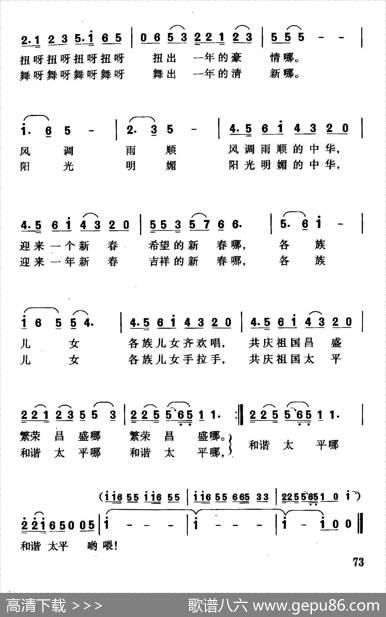 2·1 2 3 5·1 6 5 | 0 6 5 3 2 2 1 2 3 | 5 5 5 - - |
扭呀扭呀扭呀扭呀 扭出 一年的豪 情哪。
舞呀舞呀舞呀舞呀 舞出 一年的清 新哪。
i· 6 5 - - | 2· 3 5 - - | 4·5 6 i 4 3 2 0 |
风 调 雨 顺 风调雨顺的中华,
阳 光 明 媚 阳光明媚的中华,
4·5 6 i 4 3 2 0 | 5 5 3 5 7 6 6· | 5· 6 i - - |
迎来一个新春 希望的新春哪, 各 族
迎来一年新春 吉祥的新春哪, 各 族
i 6 5 5 4· | 4·5 6 i 5 4 3 2 0 | 4·5 6 i 4 3 2 0 |
儿 女 各族儿女齐欢唱, 共庆祖国昌盛
儿 女 各族儿女手拉手, 共庆祖国太平
2 2 1 2 3 5 5 3 | 2 2 5 6 5 1 1· :‖ 2 2 5 6 5 1 1· |
繁荣 昌 盛哪 繁荣 昌 盛哪。
和谐 太 平哪 和谐 太 平哪。
和谐 太 平哪
( i i 6 5 5 i i 6 5 5 | i i 6 5 5 6 6 5 3 3 | 2 2 5 6 5 1 0 )
2 2 1 6 5 0 0 5 | i - - - | i - - - | i 0 0 ‖
和谐 太平 哟喂!
73
高清下载 >>>
歌谱八六 www.gepu86.com